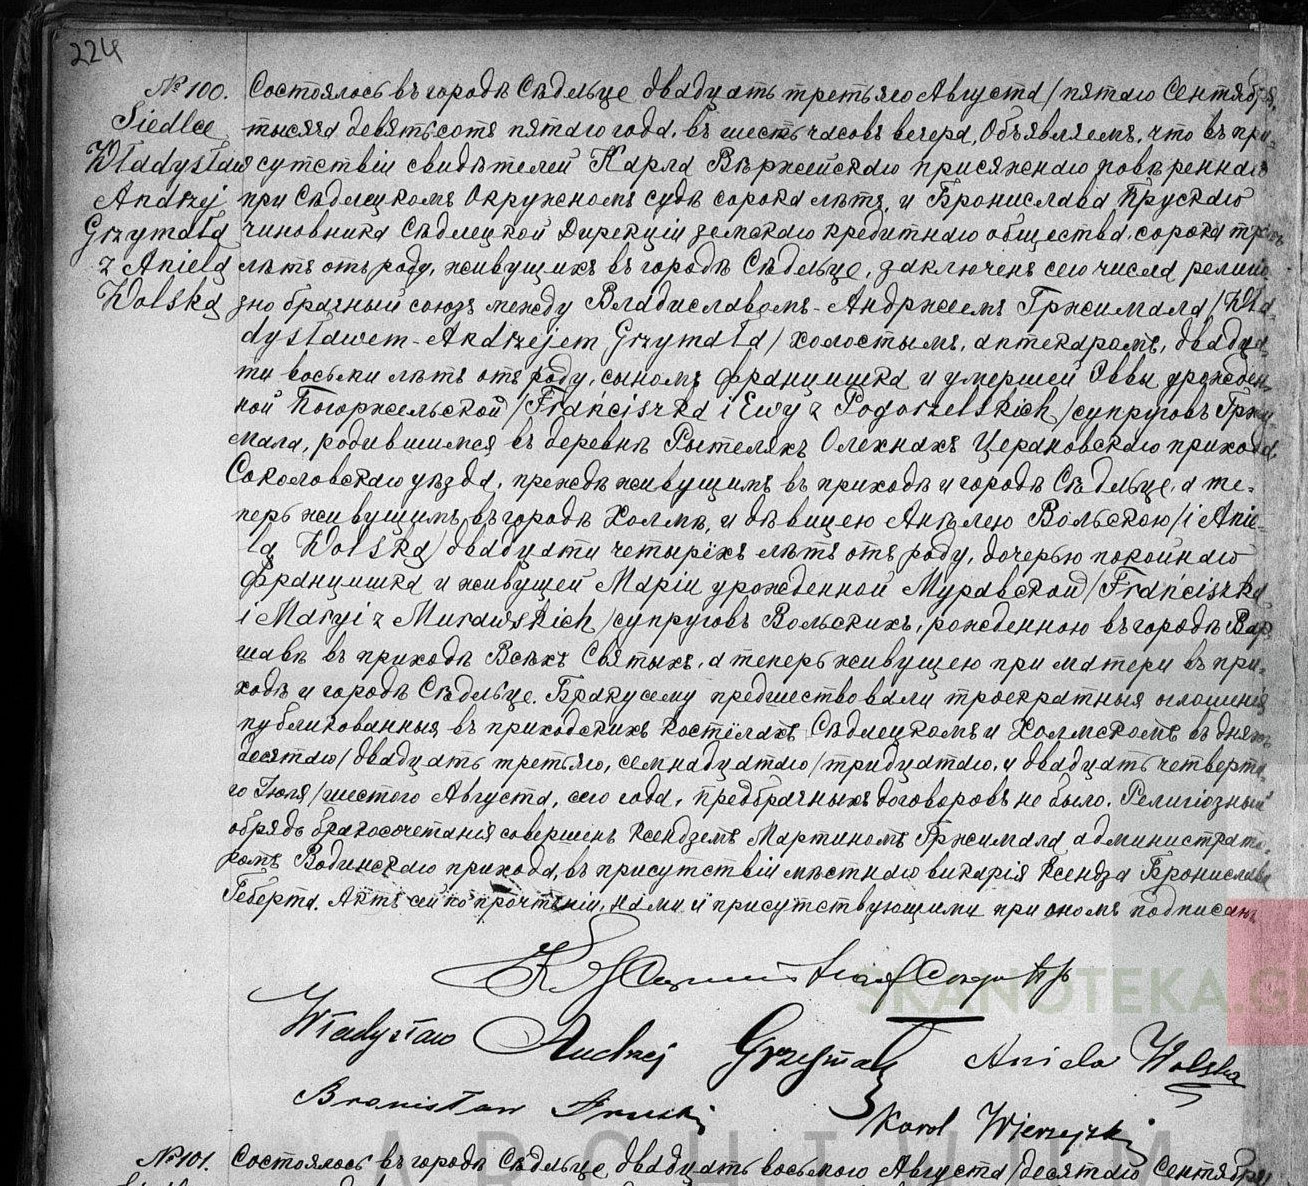 224
№ 100.
Siedlce
Władysław
Andrzej
Grzymała
z Anielą
Wolską
Состоялось въ городѣ Сѣдльце двадцать третьяго Августа /пятаго Сентября,
тысяча девятьсотъ пятаго года, въ шесть часовъ вечера, Объявляемъ, что въ при-
сутствіи свидѣтелей Карла Вѣржейскаго присяжнаго повѣреннаго
при Сѣдлецкомъ Окружномъ судѣ сорока лѣтъ, и Бронислава Прускаго
чиновника Сѣдлецкой Дирекціи земскаго кредитнаго общества, сорока трехъ
лѣтъ отъ роду, живущихъ въ городѣ Сѣдльце, заключенъ сего числа религіо
зно брачный союзъ между Владиславомъ-Андржеемъ Гржимала /Wła-
dysławem-Andrzejem Grzymała/ холостымъ, аптекаремъ, двадца-
ти восьми лѣтъ отъ роду, сыномъ Францишка и умершей Эвы урожден-
ной Погоржельской /Franciszka i Ewy z Pogorzelskich/ супруговъ Гржи-
мала, родившимся въ деревнѣ Рытеляхъ Олехнахъ Церановскаго прихода
Соколовскаго уѣзда, прежде живущимъ въ приходѣ и городѣ Сѣдльце, а те-
перь живущимъ въ городѣ Холмѣ, и дѣвицею Анѣлею Вольскою /i Anie-
lą Wolską/ двадцати четырёхъ лѣтъ отъ роду, дочерью покойнаго
Францишка и живущей Маріи урожденной Муравской /Franciszka
i Maryi z Murawskich/ супруговъ Вольскихъ, рожденною въ городѣ Вар-
шавѣ въ приходѣ Всѣхъ Святыхъ, а теперь живущею при матери въ при-
ходѣ и городѣ Сѣдльце. Браку сему предшествовали троекратныя оглашенія
публикованныя въ приходскихъ костёлахъ Сѣдлецкомъ и Холмскомъ въ дняхъ
десятаго /двадцать третьяго, семнадцатаго /тридцатаго, и двадцать четверта-
го Іюля /шестого Августа, сего года, предбрачныхъ договоровъ не было. Религіозный
обрядъ бракосочетанія совершенъ ксендземъ Мартиномъ Гржимала администрато-
ромъ Водынскаго прихода, въ присутствіи мѣстнаго викарія Ксендза Бронислава
Геберта. Актъ сей по прочтеніи, нами и присутствующими при ономъ подписанъ
Władysław Andrzej Grzymała Aniela Wolska
Bronisław Pruski Karol Wierzejski
SKANOTEKA.G
ARCHIWUM
№ 101. Состоялось въ городѣ Сѣдльце, двадцать восьмого Августа /десятаго Сентября